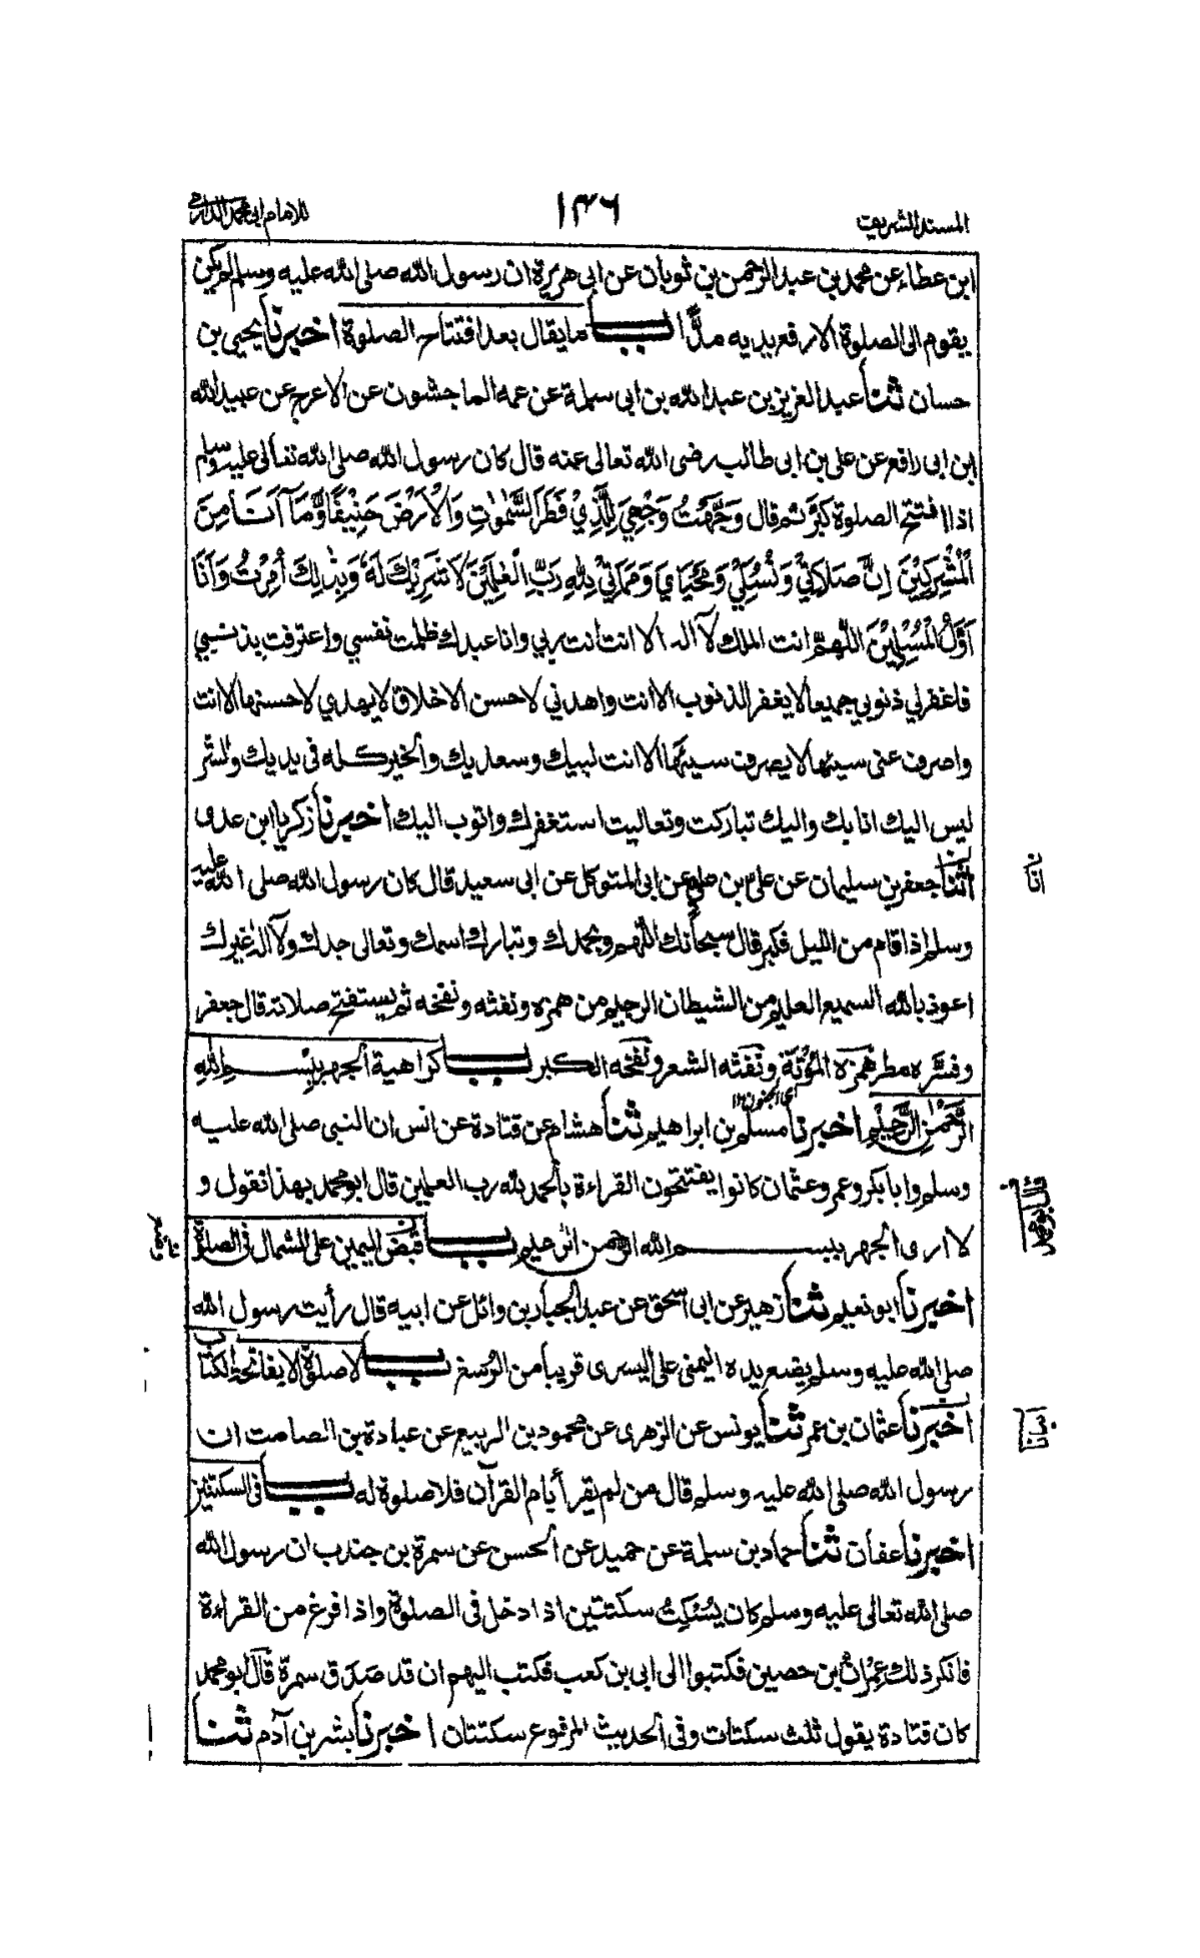 المسند الشريف
١٣٦
للامام ابي محمد الدارمي
ابن عطاء عن محمد بن عبد الرحمن بن ثوبان عن ابى هريرة ان رسول الله صلى الله عليه وسلم لم يكن
يقوم الى الصلوة الا رفع يديه مدًّا باب ما يقال بعد افتتاح الصلوة اخبرنا يحيى بن
حسان ثنا عبد العزيز بن عبد الله بن ابى سلمة عن عمه الماجشون عن الاعرج عن عبيد الله
ابن ابى رافع عن على بن ابى طالب رضى الله تعالى عنه قال كان رسول الله صلى الله تعالى عليه وسلم
اذا افتتح الصلوة كَبَّرَ ثم قال وَجَّهْتُ وَجْهِيَ لِلَّذِيْ فَطَرَ السَّمٰوٰتِ وَالْاَرْضَ حَنِيْفًا وَّمَا آنَا مِنَ
الْمُشْرِكِيْنَ اِنَّ صَلَاتِيْ وَنُسُكِيْ وَمَحْيَايَ وَمَمَاتِيْ لِلّٰهِ رَبِّ الْعٰلَمِيْنَ لَا شَرِيْكَ لَهٗ وَبِذٰلِكَ اُمِرْتُ وَاَنَا
اَوَّلُ الْمُسْلِمِيْنَ اللّٰهُمَّ انت الملك لآ اله الا انت انت ربي وانا عبدك ظلمت نفسي واعترفت بذنبي
فاغفرلي ذنوبي جميعا لا يغفر الذنوب الا انت واهدني لاحسن الاخلاق لا يهدي لاحسنها الا انت
واصرف عنى سيئها لا يصرف سيئها الا انت لبيك وسعديك والخير كله فى يديك والشر
ليس اليك انا بك واليك تباركت وتعاليت استغفرك واتوب اليك اخبرنا زكريا ابن عدى
اثنا جعفر بن سليمان عن على بن على عن ابى المتوكل عن ابى سعيد قال كان رسول الله صلى الله عليه
وسلم اذا قام من الليل فكبر قال سبحانك اللهم وبحمدك وتبارك اسمك وتعالى جدك ولآ اله غيرك
اعوذ بالله السميع العليم من الشيطان الرجيم من همزه ونفثه ونفخه ثم يستفتح صلاته قال جعفر
وفسَّره مطر همزه المُؤْتَة ونفثه الشعر ونفخه الكبر باب كراهية الجهر ببسم اللهِ
اى الجنون ١٢
الرَّحْمٰنِ الرَّحِيْمِ اخبرنا مسلم بن ابراهيم ثنا هشام عن قتادة عن انس ان النبى صلى الله عليه
وسلم وابا بكر وعمر وعثمان كانوا يفتتحون القراءة بالحمد لله رب العلمين قال ابو محمد بهذا نقول و
لا ارى الجهر ببسم الله الرحمن الرحيم باب قبض اليمين على الشمال فى الصلوة
اخبرنا ابو نعيم ثنا زهير عن ابى اسحق عن عبد الجبار بن وائل عن ابيه قال رأيت رسول الله
صلى الله عليه وسلم يضع يده اليمنى على اليسرى قريبا من الرسغ باب لا صلوة الا بفاتحة الكتاب
اخبرنا عثمان بن عمر ثنا يونس عن الزهرى عن محمود بن الربيع عن عبادة بن الصامت ان
رسول الله صلى الله عليه وسلم قال من لم يقرأ بأم القرآن فلا صلوة له باب فى السكتتين
اخبرنا عفان ثنا حماد بن سلمة عن حميد عن الحسن عن سمرة بن جندب ان رسول الله
صلى الله تعالى عليه وسلم كان يَسْكُتُ سكتتين اذا دخل فى الصلوة واذا فرغ من القراءة
فانكر ذلك عمران بن حصين فكتبوا الى ابى بن كعب فكتب اليهم ان قد صَدَق سمرة قال ابو محمد
كان قتادة يقول ثلث سكتات وفى الحديث المرفوع سكتتان اخبرنا بشر بن آدم ثنا
انا
قال ابو محمد